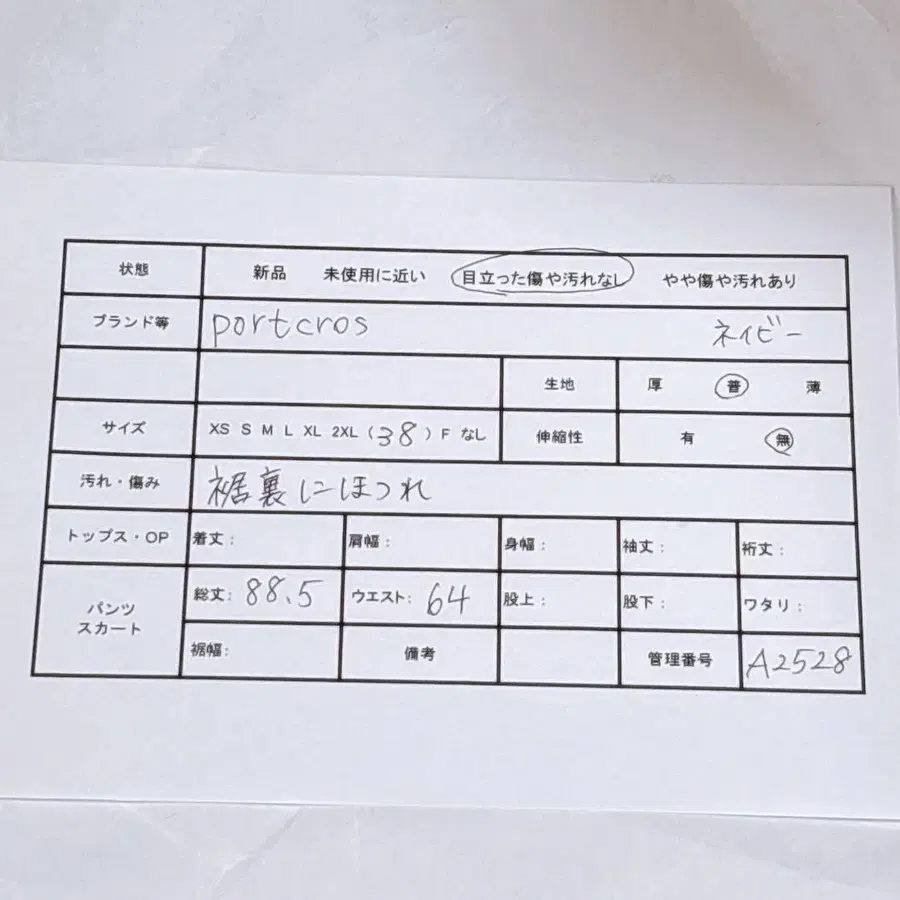 状態 新品 未使用に近い 目立った傷や汚れなし やや傷や汚れあり
ブランド等 portcros ネイビー
生地 厚 普 薄
サイズ XS S M L XL 2XL (38) F なし 伸縮性 有 無
汚れ・傷み 裾裏にほつれ
トップス・OP 着丈: 肩幅: 身幅: 袖丈: 裄丈:
パンツ 総丈: 88.5 ウエスト: 64 股上: 股下: ワタリ:
スカート 裾幅: 備考 管理番号 A2528